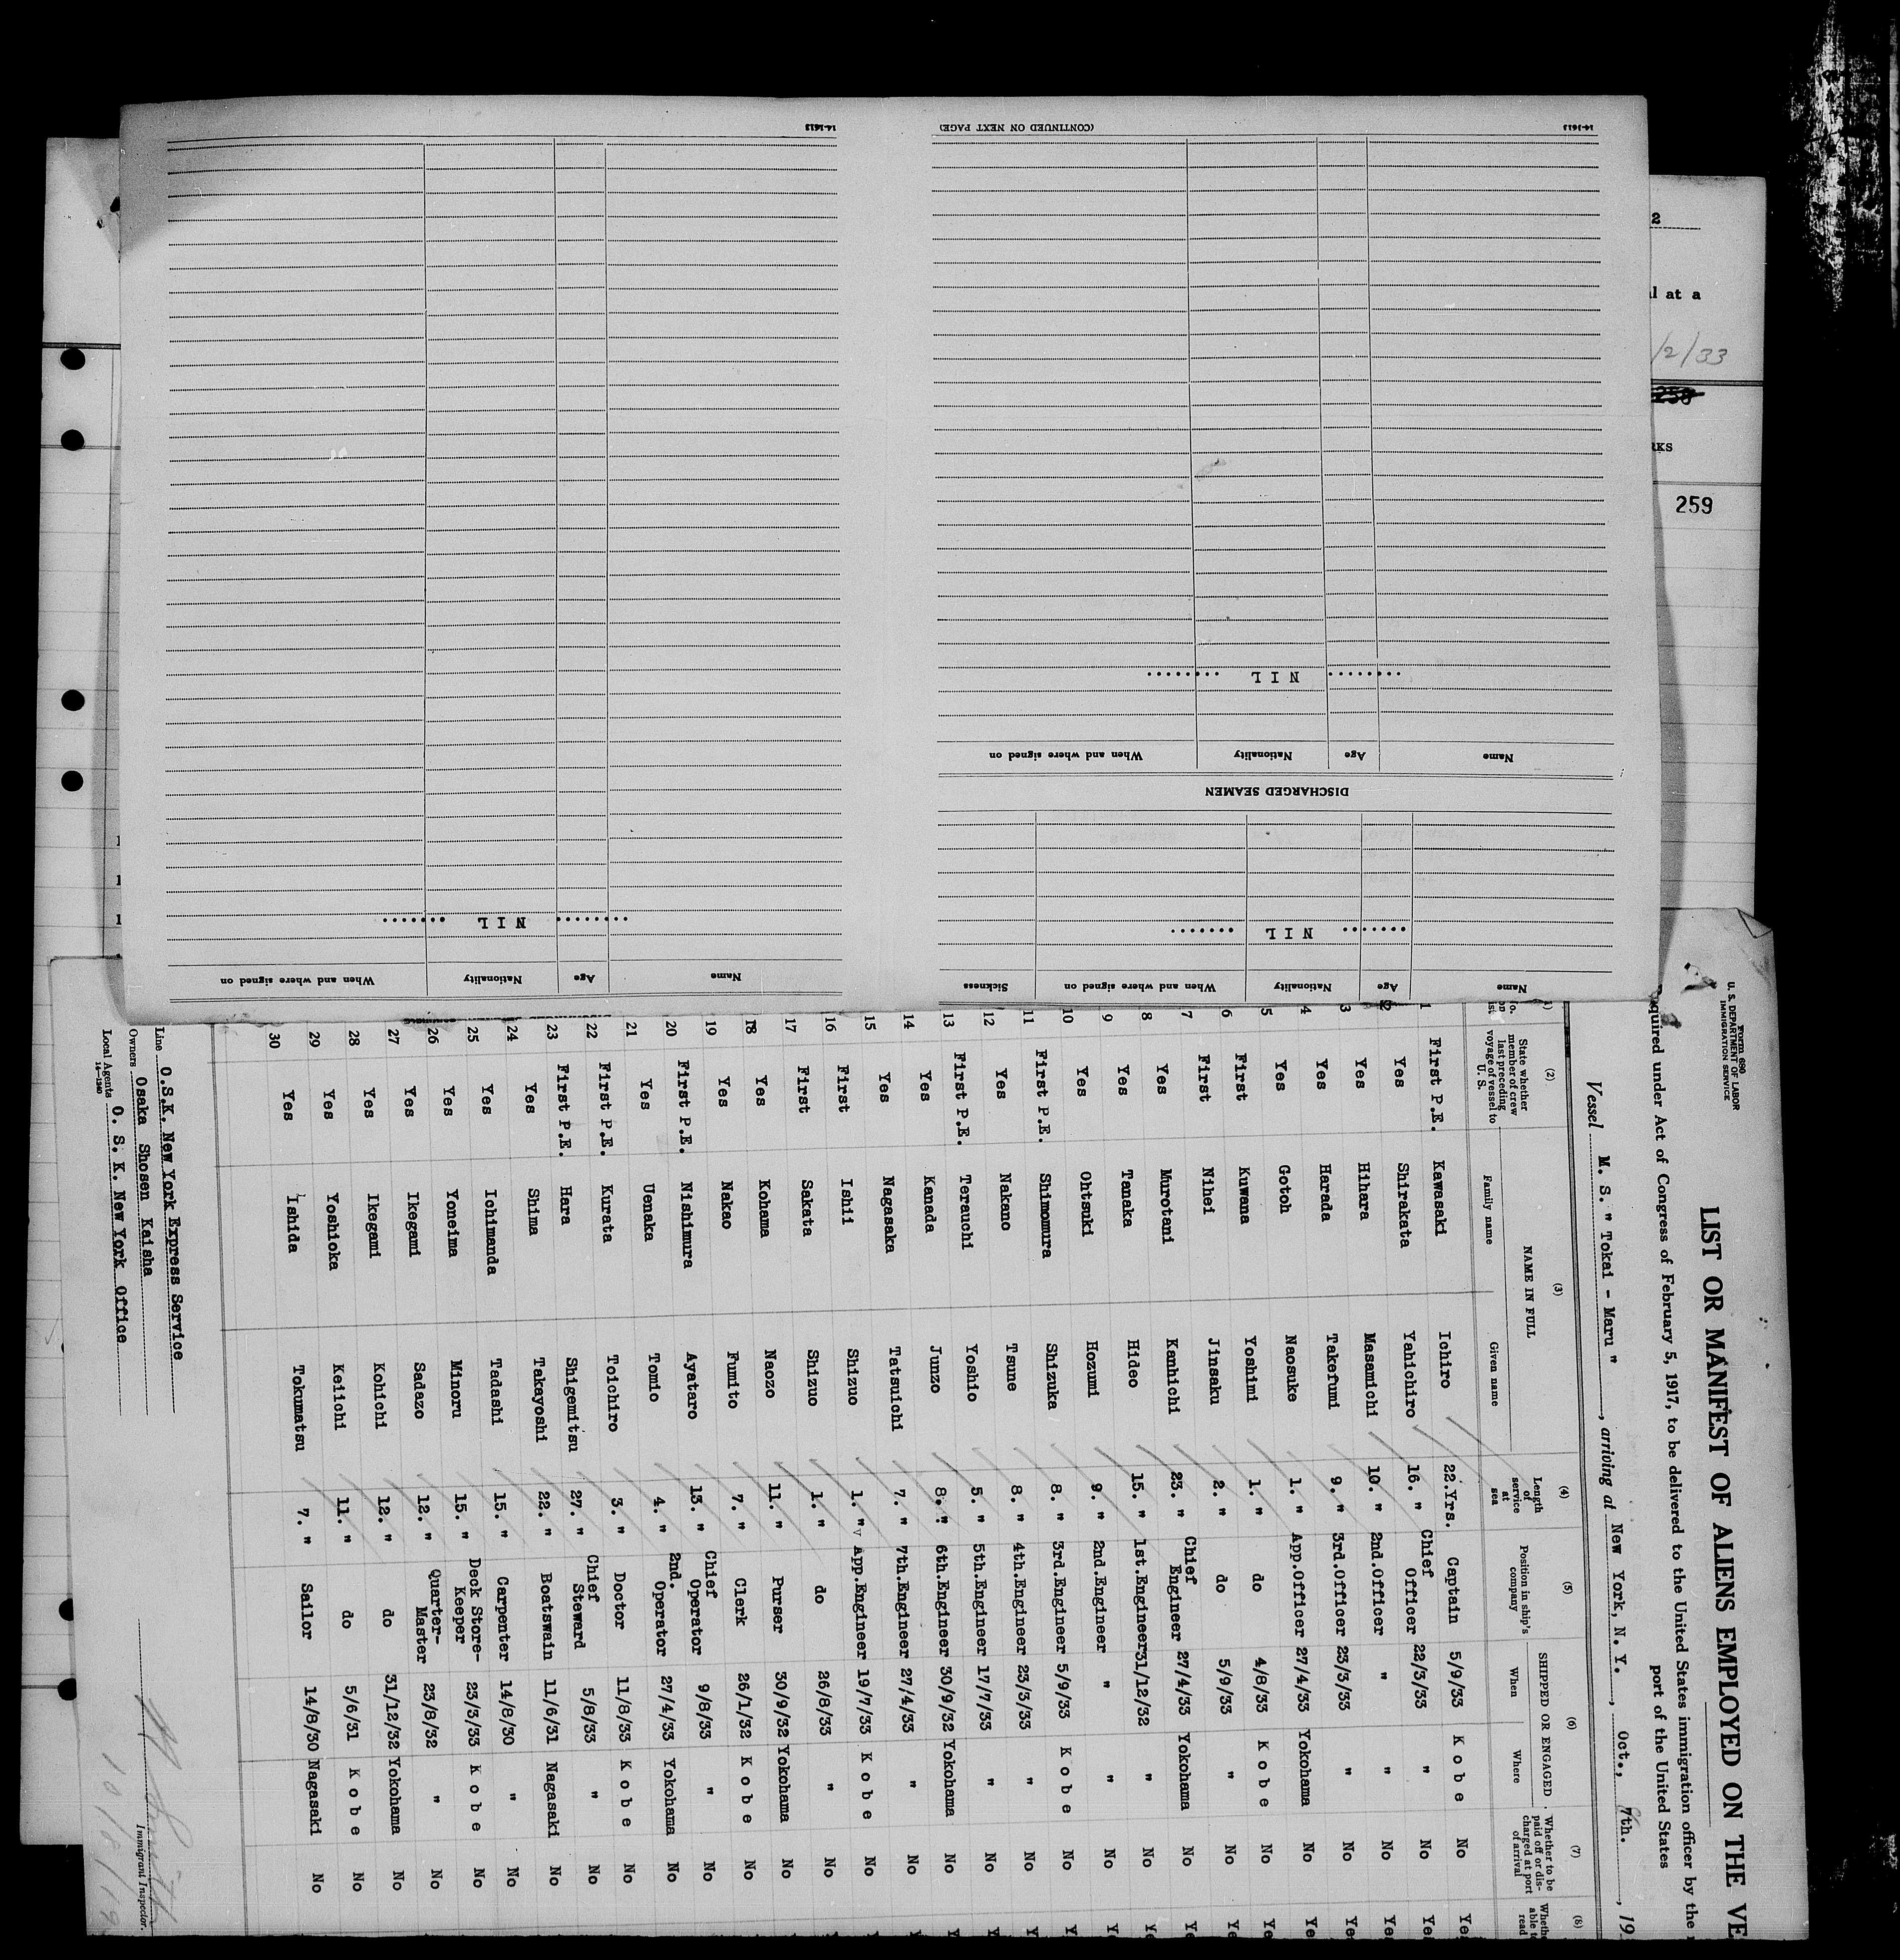 14-1613
(CONTINUED ON NEXT PAGE)
Name Age Nationality When and where signed on Sickness
........ NIL .......
DISCHARGED SEAMEN
Name Age Nationality When and where signed on
........ NIL ........
14-1613
Name Age Nationality When and where signed on
........ NIL .......
2
l at a
/2/33
RKS
259
Form 680
U. S. DEPARTMENT OF LABOR
IMMIGRATION SERVICE
LIST OR MANIFEST OF ALIENS EMPLOYED ON THE VE
quired under Act of Congress of February 5, 1917, to be delivered to the United States immigration officer by the
port of the United States
Vessel M. S. " Tokai - Maru " , arriving at New York, N. Y. , Oct., 7th. , 19
(2) (3) (4) (5) (6) (7) (8)
State whether member of crew last preceding voyage of vessel to U. S.
NAME IN FULL
Family name Given name
Length of service at sea
Position in ship's company
SHIPPED OR ENGAGED
When Where
Whether to be paid off or discharged at port of arrival
1 First P.E. Kawasaki Ichiro 22.Yrs. Captain 5/9/33 K o b e No Ye
2 Yes Shirakata Yahichiro 16. " Chief Officer 22/3/33 " No Ye
3 Yes Hihara Masamichi 10. " 2nd.Officer " " No Ye
4 Yes Harada Takefumi 9. " 3rd.Officer 23/3/33 " No Ye
5 Yes Gotoh Naosuke 1. " App.Officer 27/4/33 Yokohama No Ye
5 First Kuwana Yoshimi 1. " do 4/8/33 K o b e No Ye
6 First Nihei Jinsaku 2. " do 5/9/33 " No Ye
7 Yes Murotani Kanhichi 23. " Chief Engineer 27/4/33 Yokohama No Ye
8 Yes Tanaka Hideo 15. " 1st.Engineer 31/12/32 " No Ye
9 Yes Ohtsuki Hozumi 9. " 2nd.Engineer " " No Y
10 First P.E. Shimomura Shizuka 8. " 3rd.Engineer 5/9/33 K o b e No Y
11 Yes Nakano Tsune 8. " 4th.Engineer 23/3/33 " No Y
12 First P.E. Terauchi Yoshio 5. " 5th.Engineer 17/7/33 " No Y
13 Yes Kanada Junzo 8. " 6th.Engineer 30/9/32 Yokohama No Y
14 Yes Nagasaka Tatsuichi 7. " 7th.Engineer 27/4/33 " No
15 First Ishii Shizuo 1. " App.Engineer 19/7/33 K o b e No
16 First Sakata Shizuo 1. " do 26/8/33 " No
17 Yes Kohama Naozo 11. " Purser 30/9/32 Yokohama No
18 Yes Nakao Fumito 7. " Clerk 26/1/32 K o b e No
19 First P.E. Nishimura Ayataro 13. " Chief Operator 9/8/33 " No
20 Yes Uenaka Tomio 4. " 2nd. Operator 27/4/33 Yokohama No
21 First P.E. Kurata Toichiro 3. " Doctor 11/8/33 K o b e No
22 First P.E. Hara Shigemitsu 27. " Chief Steward 5/8/33 " No
23 Yes Shima Takayoshi 22. " Boatswain 11/6/31 Nagasaki No
24 Yes Ichimanda Tadashi 15. " Carpenter 14/8/30 " No
25 Yes Yoneima Minoru 15. " Deck Store-Keeper 23/3/33 K o b e No
26 Yes Ikegami Sadazo 12. " Quarter-Master 23/8/32 " No
27 Yes Ikegami Kohichi 12. " do 31/12/32 Yokohama No
28 Yes Yoshioka Keiichi 11. " do 5/6/31 K o b e No
29 Yes Ishida Tokumatsu 7. " Sailor 14/8/30 Nagasaki No
30
Line O.S.K. New York Express Service
Owners Osaka Shosen Kaisha
Local Agents O. S. K. New York Office
14-1240
Immigrant Inspector.